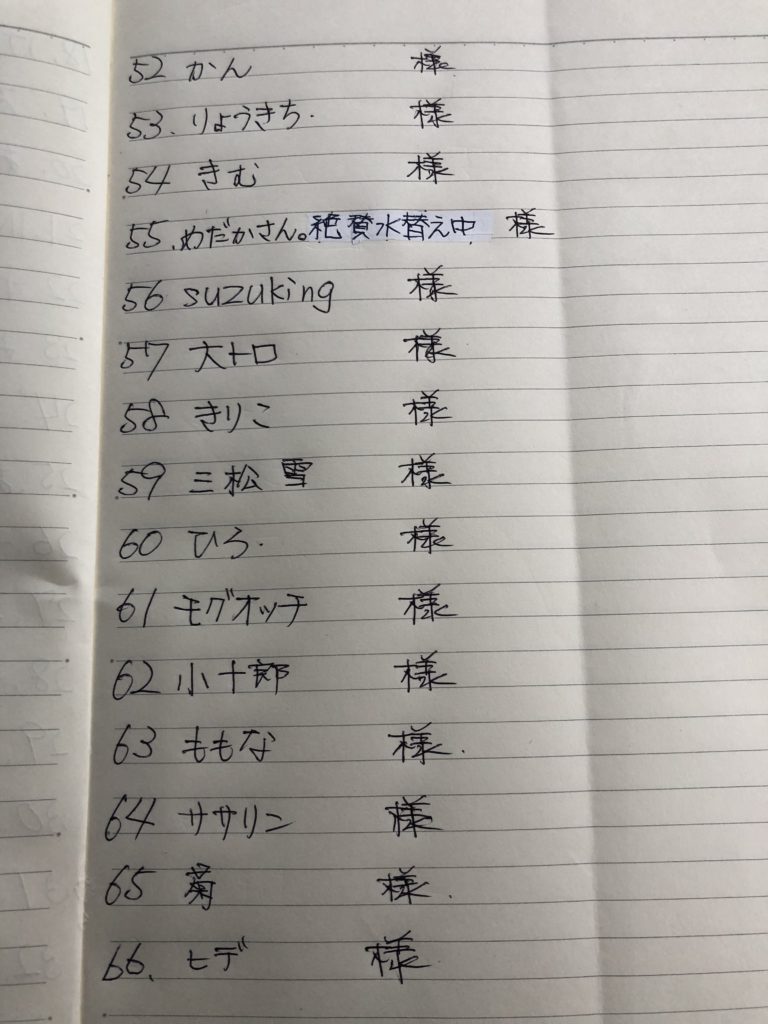 52 かん 様
53. りょうきち. 様
54 きむ 様
55. めだかさん。絶賛水替え中 様
56 suzuking 様
57 大トロ 様
58 きりこ 様
59 三松 雪 様
60 ひろ. 様
61 モグオッチ 様
62 小十郎 様
63 ももな 様.
64 ササリン 様
65 菊 様.
66. ヒデ 様